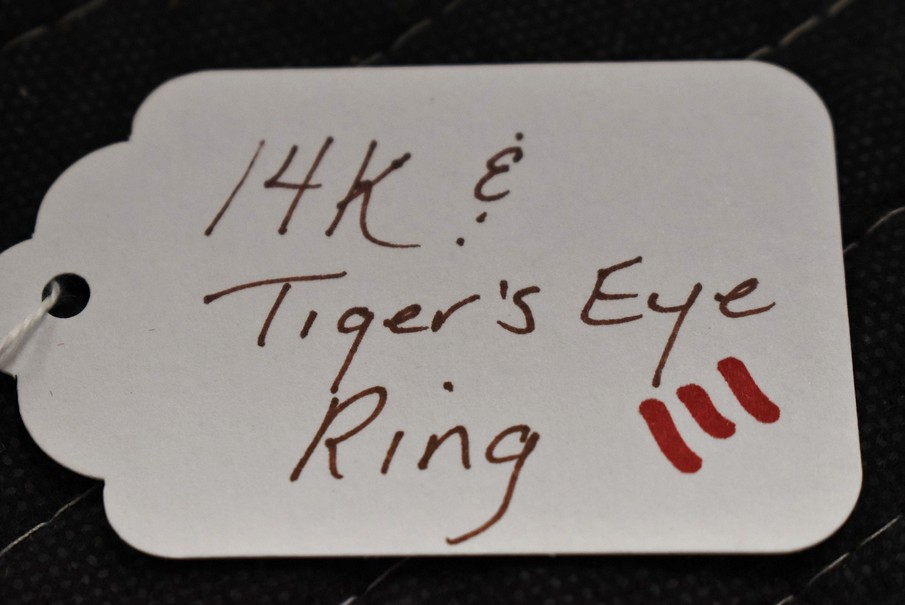 14K &
Tiger's Eye
Ring